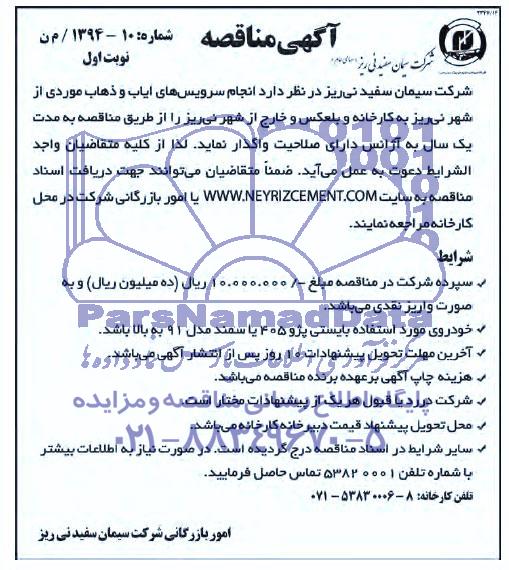 ۲۳۴۶/۱۴
آگهی مناقصه
شماره: ۱۰ - ۱۳۹۴ / م ن
نوبت اول
شرکت سیمان سفید نی ریز (سهامی عام)
شرکت سیمان سفید نی‌ریز در نظر دارد انجام سرویس‌های ایاب و ذهاب موردی از
شهر نی‌ریز به کارخانه و بلعکس و خارج از شهر نی‌ریز را از طریق مناقصه به مدت
یک سال به آژانس دارای صلاحیت واگذار نماید. لذا از کلیه متقاضیان واجد
الشرایط دعوت به عمل می‌آید. ضمناً متقاضیان می‌توانند جهت دریافت اسناد
مناقصه به سایت WWW.NEYRIZCEMENT.COM یا امور بازرگانی شرکت در محل
کارخانه مراجعه نمایند.
شرایط
✓ سپرده شرکت در مناقصه مبلغ -/۱۰.۰۰۰.۰۰۰ ریال (ده میلیون ریال) و به
صورت واریز نقدی می‌باشد.
✓ خودروی مورد استفاده بایستی پژو ۴۰۵ یا سمند مدل ۹۱ به بالا باشد.
✓ آخرین مهلت تحویل پیشنهادات ۱۰ روز پس از انتشار آگهی می‌باشد.
✓ هزینه چاپ آگهی بر عهده برنده مناقصه می‌باشد.
✓ شرکت در رد یا قبول هر یک از پیشنهادات مختار است.
✓ محل تحویل پیشنهاد قیمت دبیرخانه کارخانه می‌باشد.
✓ سایر شرایط در اسناد مناقصه درج گردیده است. در صورت نیاز به اطلاعات بیشتر
با شماره تلفن ۵۳۸۲۰۰۰۱ تماس حاصل فرمایید.
تلفن کارخانه: ۸ - ۵۳۸۳۰۰۰۶ - ۰۷۱
امور بازرگانی شرکت سیمان سفید نی ریز
ParsNamadData
پایگاه اطلاع رسانی مناقصه و مزایده
۰۲۱-۸۸۳۴۹۶۷۰-۵